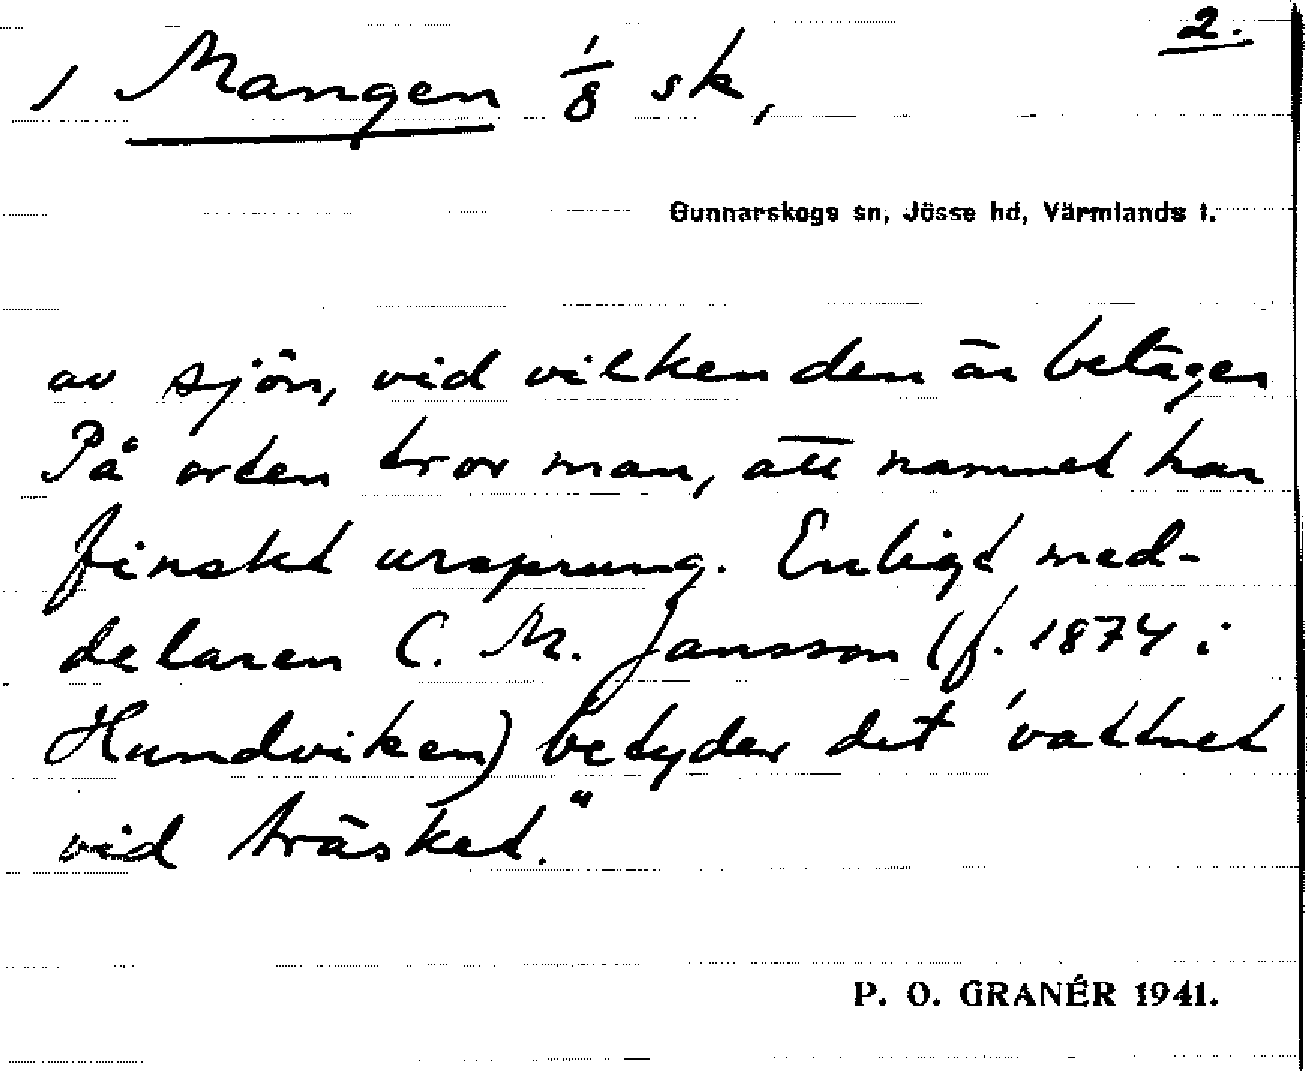 2.
1 Mangen 1/8 sk,
Gunnarskogs sn, Jösse hd, Värmlands l.
av sjön, vid vilken den är belägen
På orten tror man, att namnet har
finskt ursprung. Enligt med-
delaren C. M. Jansson (f. 1874 i
Hundviken) betyder det 'vattnet
vid träsket."
P. O. GRANÉR 1941.